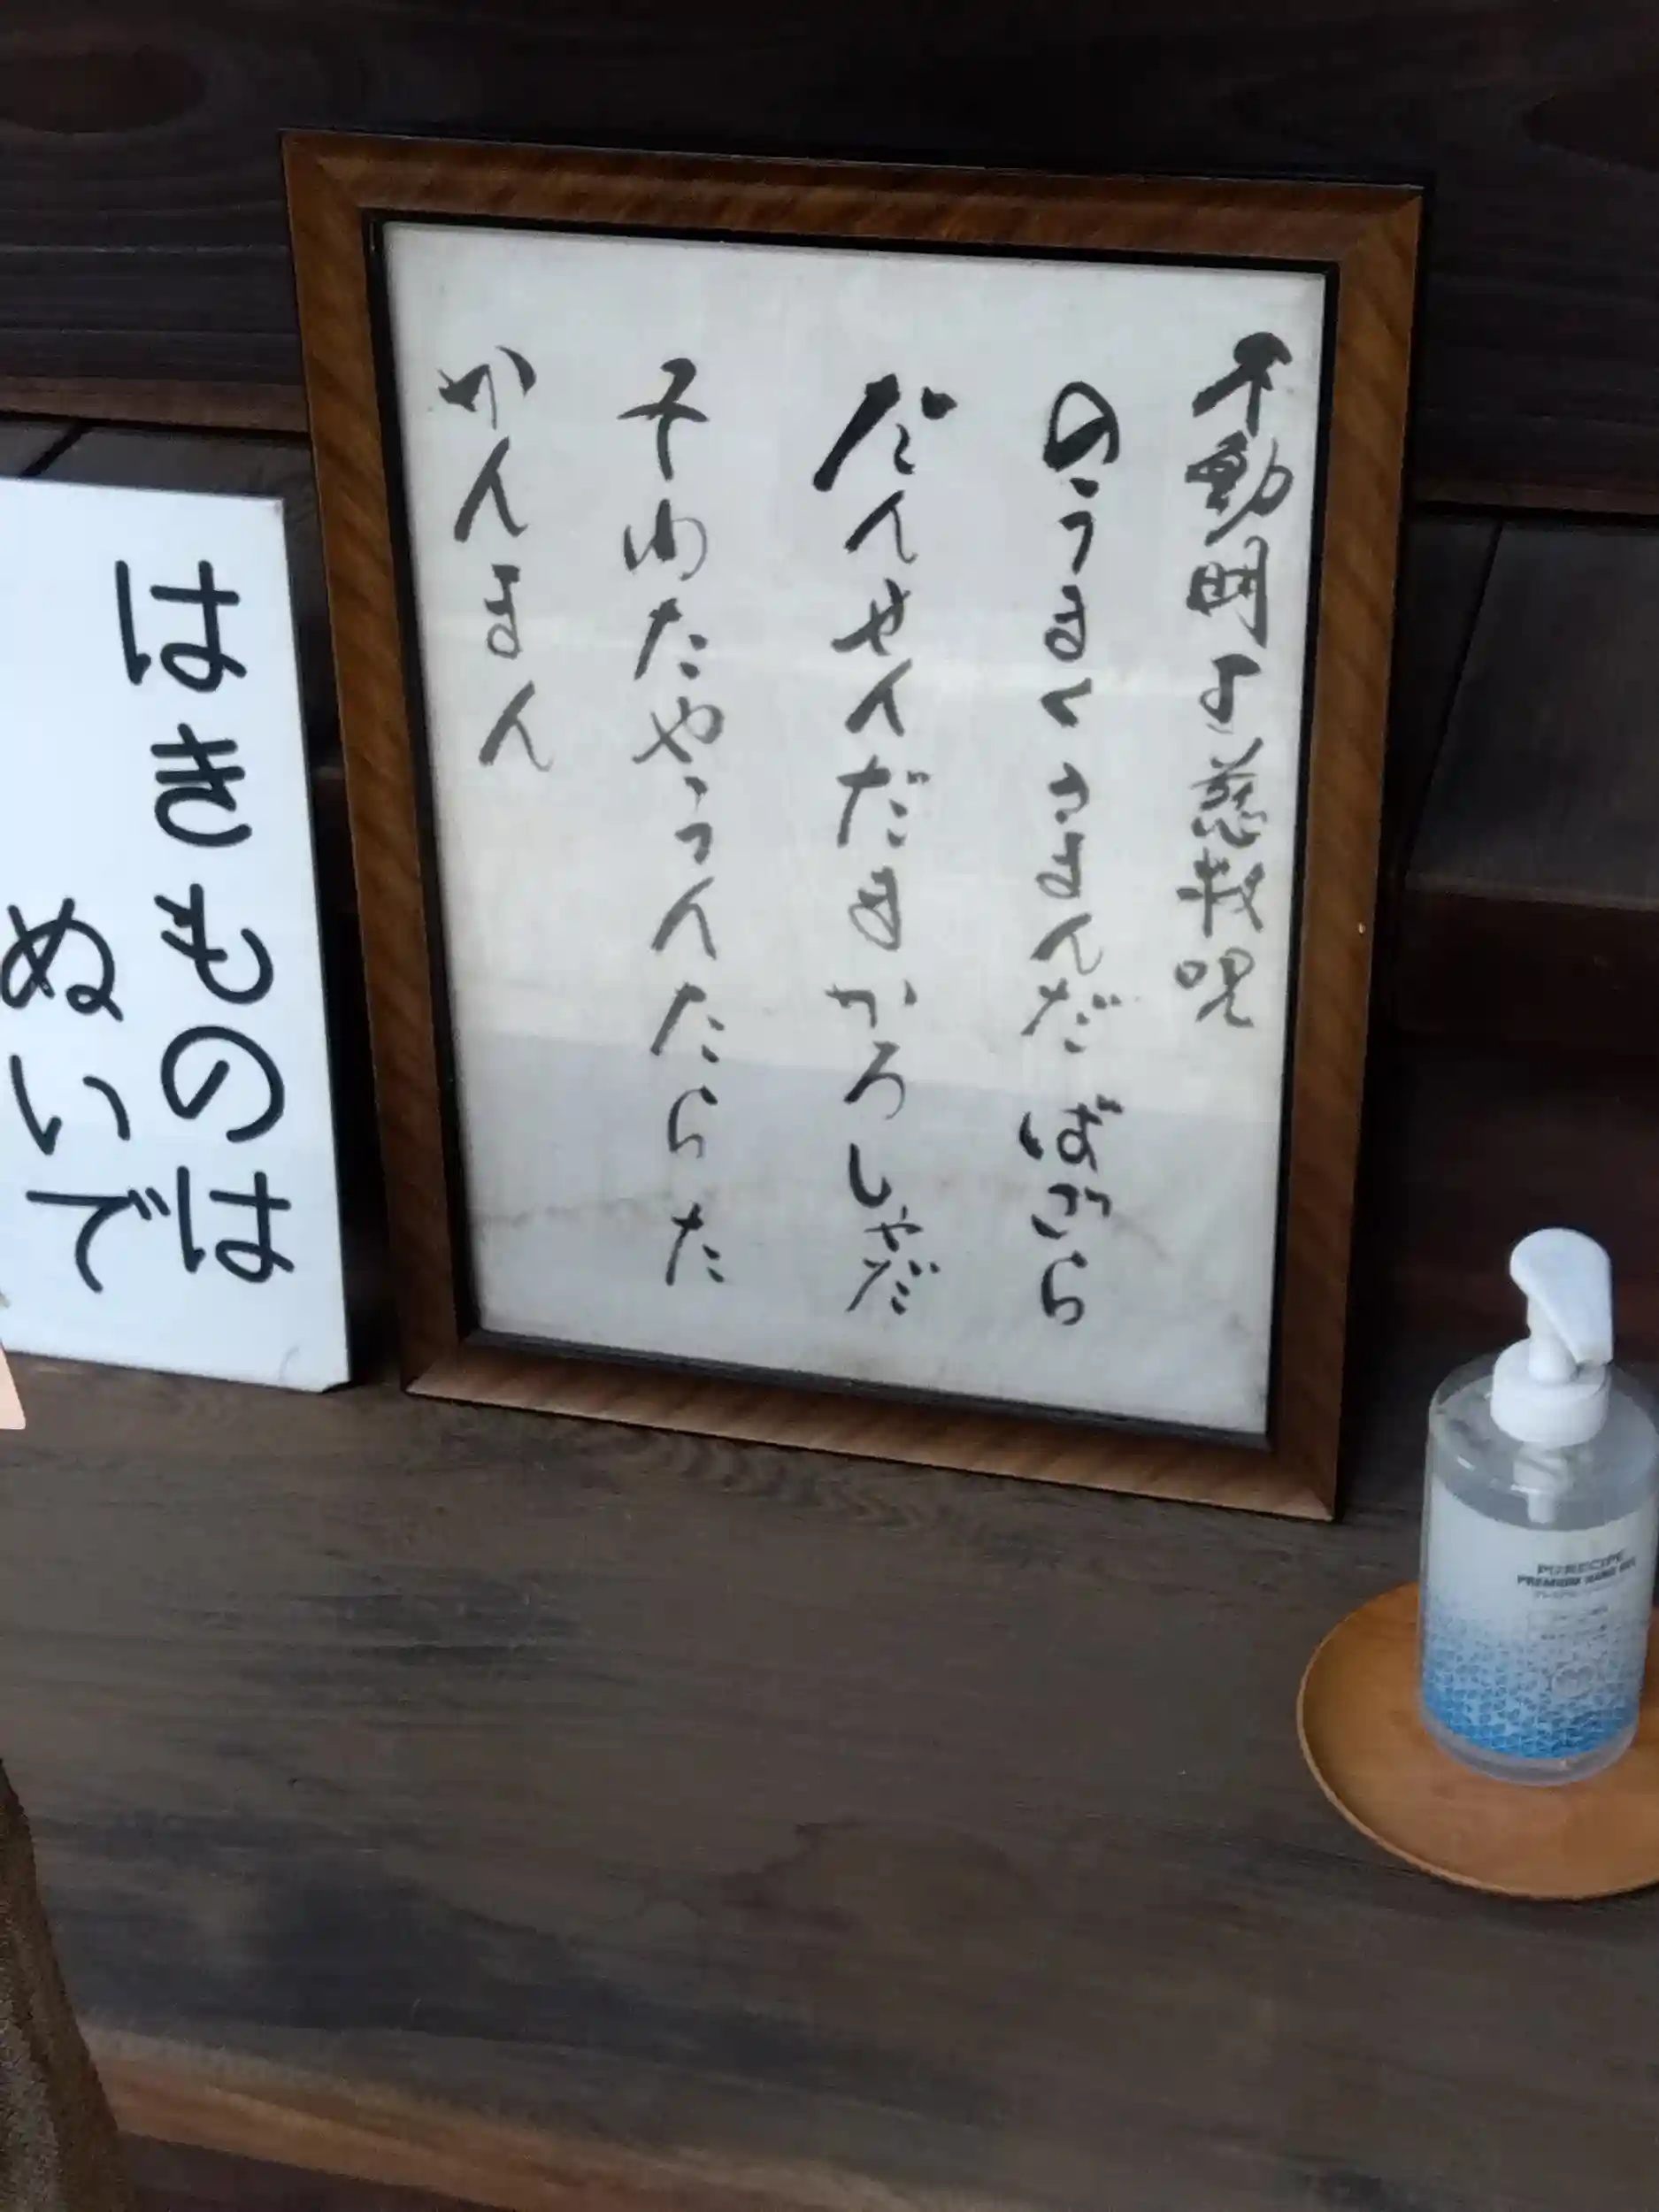 不動明王慈救呪
のうまくさまんだばざら
だんせんだまかろしゃだ
そわたやうんたらた
かんまん
はきものは
ぬいで
PURECIPE
PREMIUM HAND GEL